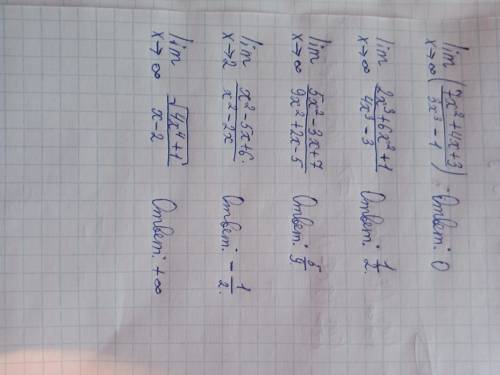 lim x→∞ (7x²+4x+3 / 5x³-1) Ответ: 0
lim x→∞ 2x³+6x²+1 / 4x³-3 Ответ: 1/2.
lim x→∞ 5x²-3x+7 / 9x²+2x-5 Ответ: 5/9.
lim x→2 x²-5x+6 / x²-2x Ответ: -1/2.
lim x→∞ √(4x⁴+1) / x-2 Ответ: +∞